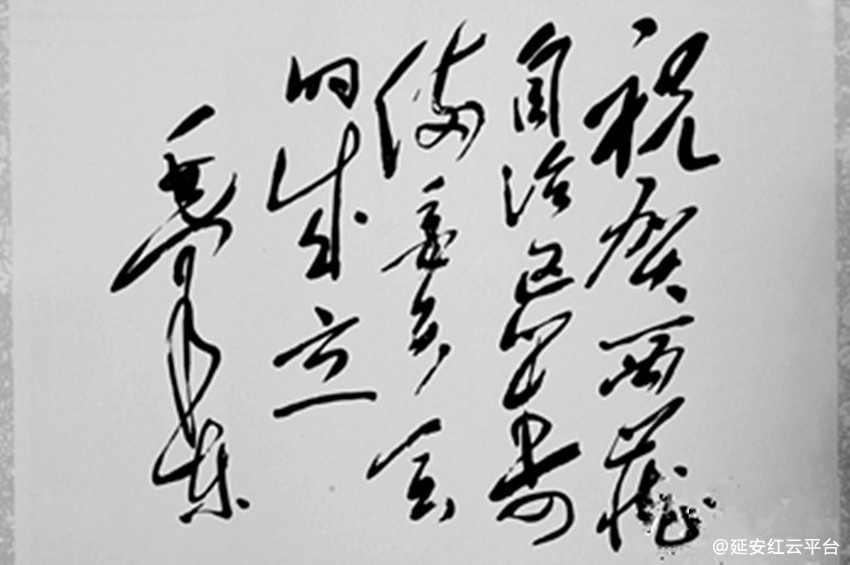 祝贺西藏
自治区籌
備委员会
的成立
毛泽东
@延安红云平台